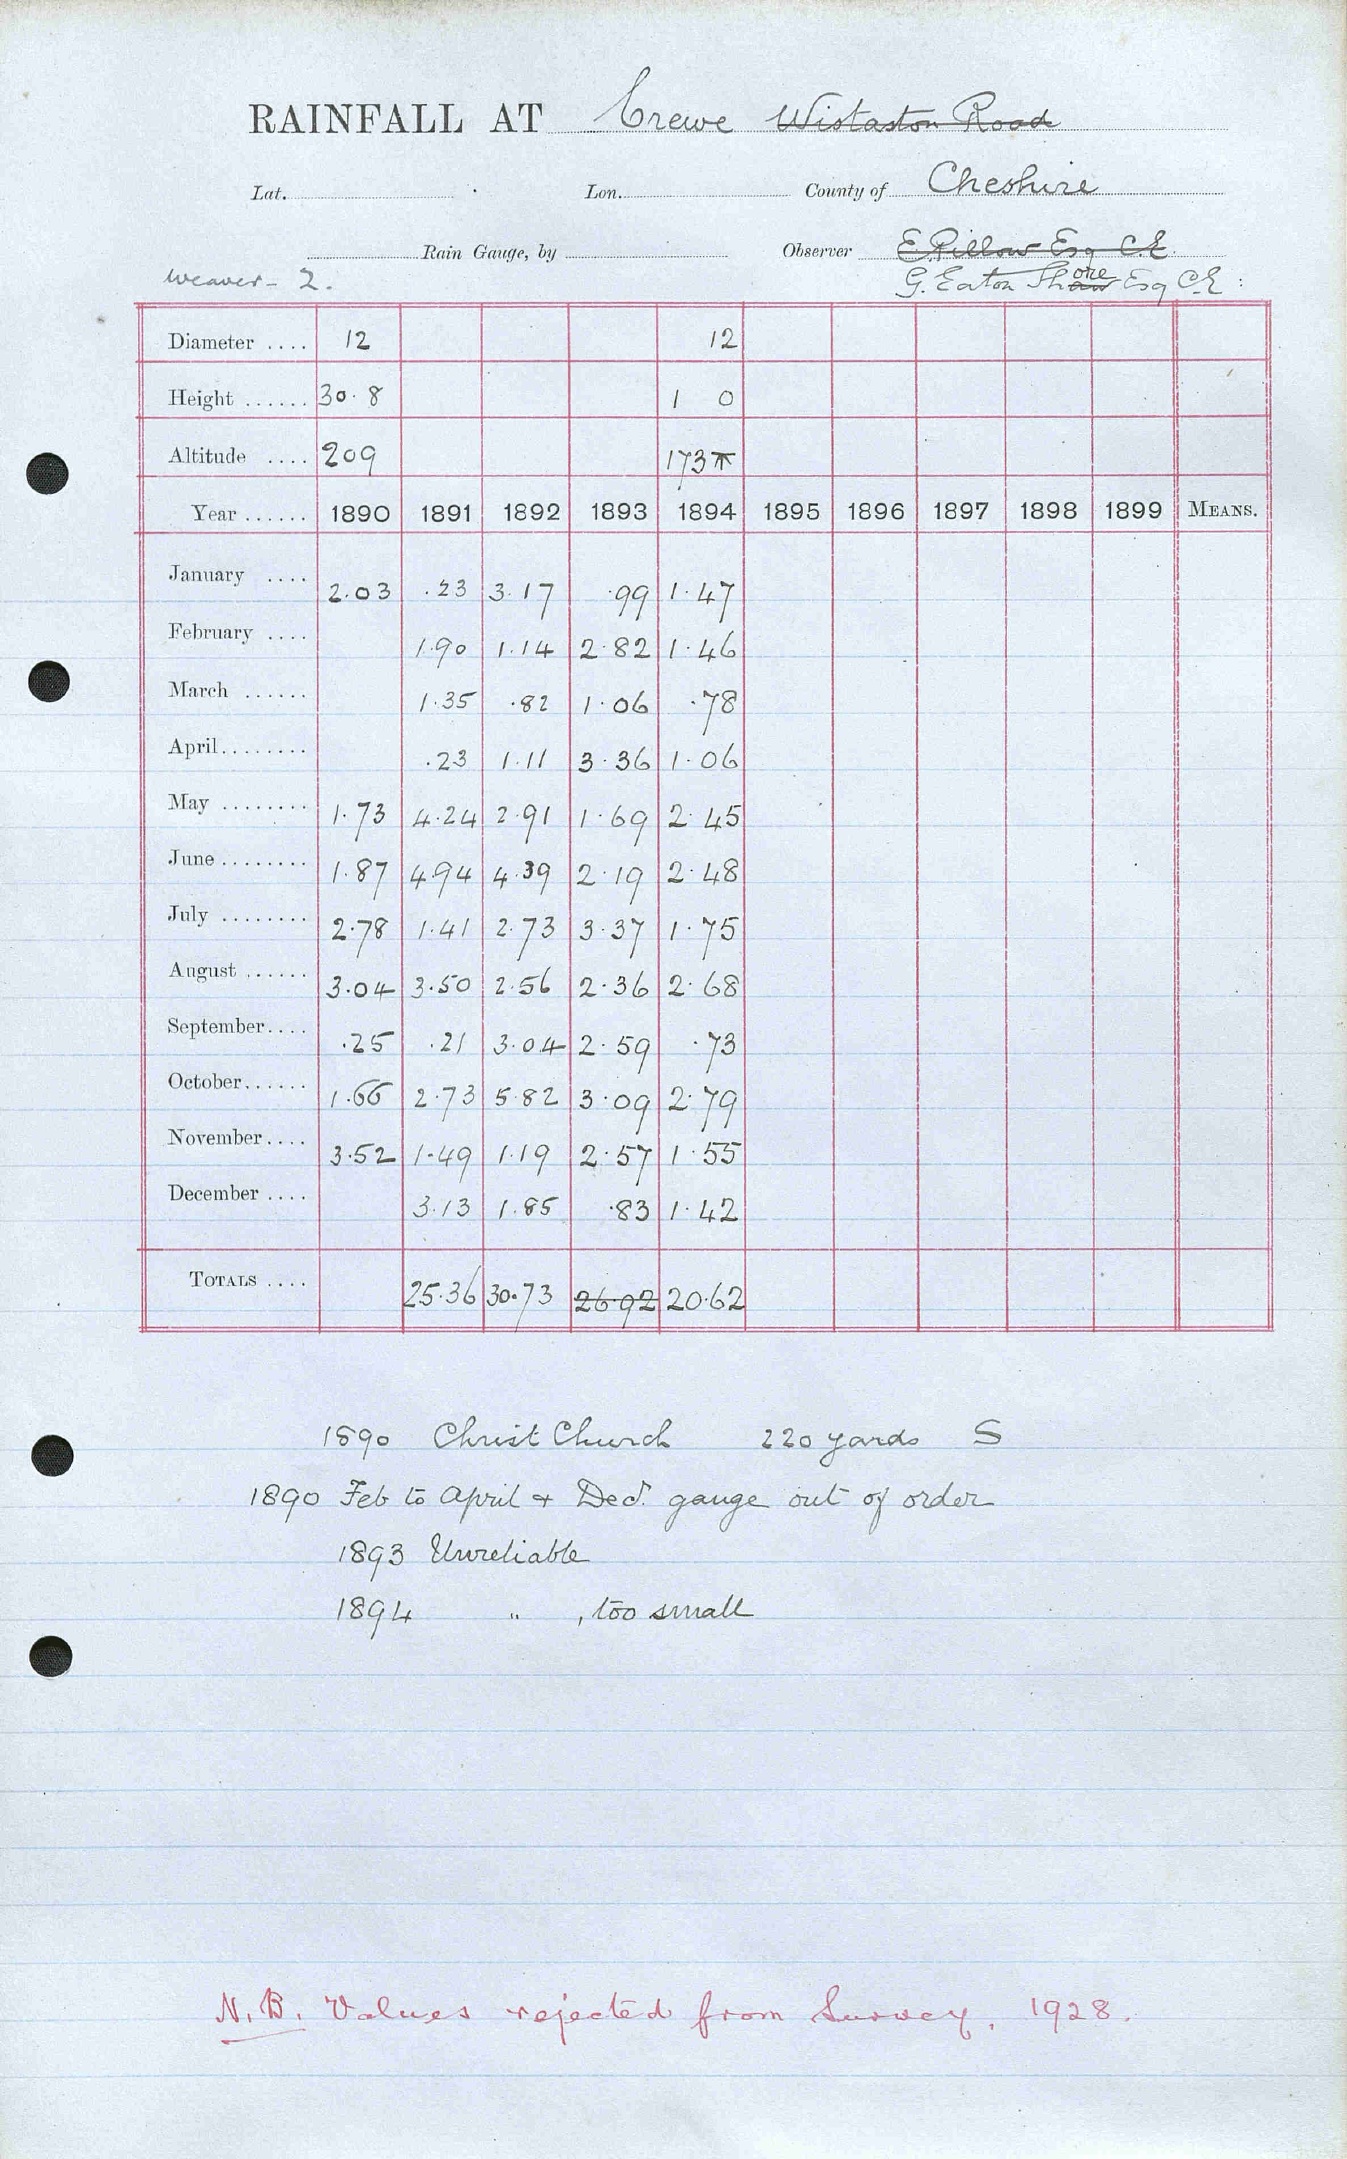 RAINFALL AT Crewe Wistaston Road
Lat. Lon. County of Cheshire
Rain Gauge, by Observer E Pillow Esq C.E.
Weaver - 2. G. Eaton Shaw ore Esq C.E:
Diameter .... 12 12
Height ...... 30.8 1 0
Altitude .... 209 173
Year ...... 1890 1891 1892 1893 1894 1895 1896 1897 1898 1899 MEANS.
January .... 2.03 .23 3.17 .99 1.47
February .... 1.90 1.14 2.82 1.46
March ...... 1.35 .82 1.06 .78
April........ .23 1.11 3.36 1.06
May ........ 1.73 4.24 2.91 1.69 2.45
June........ 1.87 4.94 4.39 2.19 2.48
July ........ 2.78 1.41 2.73 3.37 1.75
August ...... 3.04 3.50 2.56 2.36 2.68
September.... .25 .21 3.04 2.59 .73
October...... 1.66 2.73 5.82 3.09 2.79
November.... 3.52 1.49 1.19 2.57 1.55
December .... 3.13 1.85 .83 1.42
TOTALS .... 25.36 30.73 26.92 20.62
1890 Christ Church 220 yards S
1890 Feb to April + Dec. gauge out of order
1893 Unreliable
1894 " , too small
N.B. Values rejected from Survey, 1928.